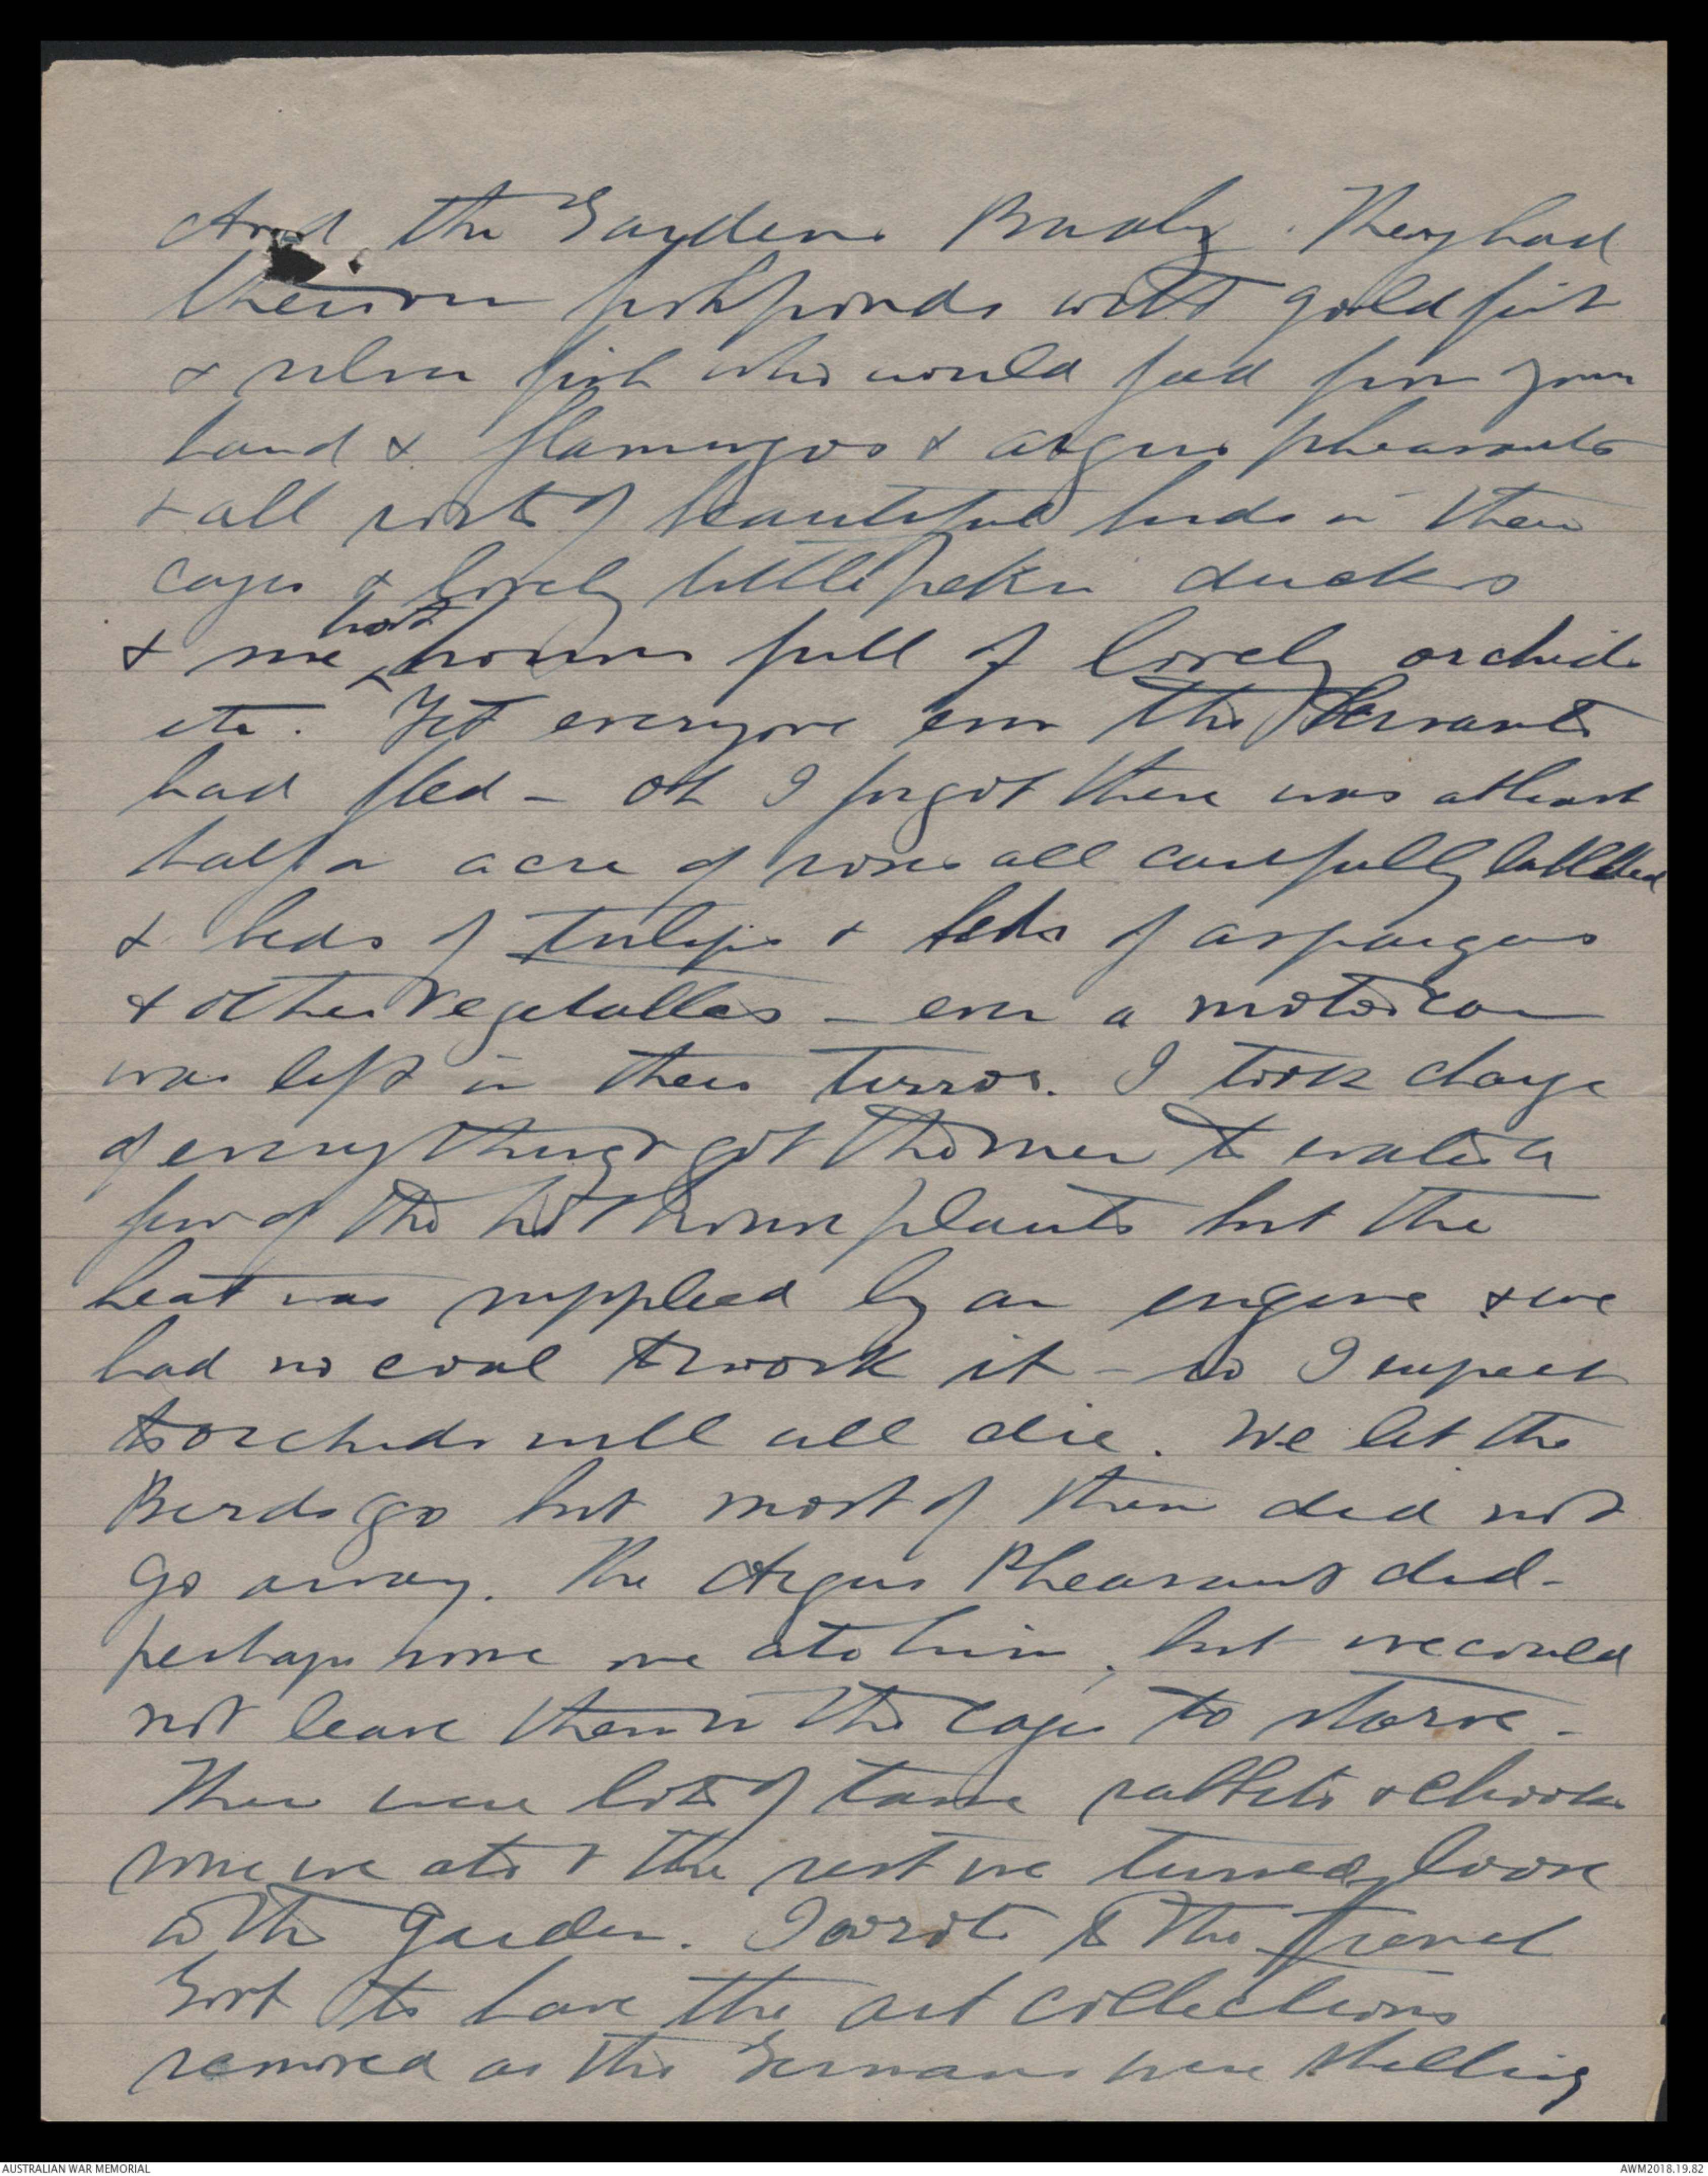 And the Gardens Binky. They had
their own fishponds with gold fish
& silver fish who would feed from your
hand & flamingos & argus pheasants
& all sorts of beautiful birds in their
cages & lovely little pekin ducks
& some hot houses full of lovely orchids
etc. Yet everyone even the servants
had fled – oh I forgot there was atleast
half a acre of roses all carefully labelled
& beds of tulips & beds of aspargus
& other vegetables – even a motorcar
was left in their terror. I took charge
of everything & got the men to water a
few of the hot house plants but the
heat was supplied by an engine & we
had no coal to work it – so I expect
orchids will all die. We let the
Birds go but most of them did not
go away. The Argus Pheasant did –
perhaps some one ate him, but we could
not leave them in the cages to starve –
There were lots of tame rabbits & chooks
some we ate & the rest we turned loose
in the garden. I wrote to the French
Govt to have the art collections
removed as the Germans were shelling
AUSTRALIAN WAR MEMORIAL
AWM2018.19.82